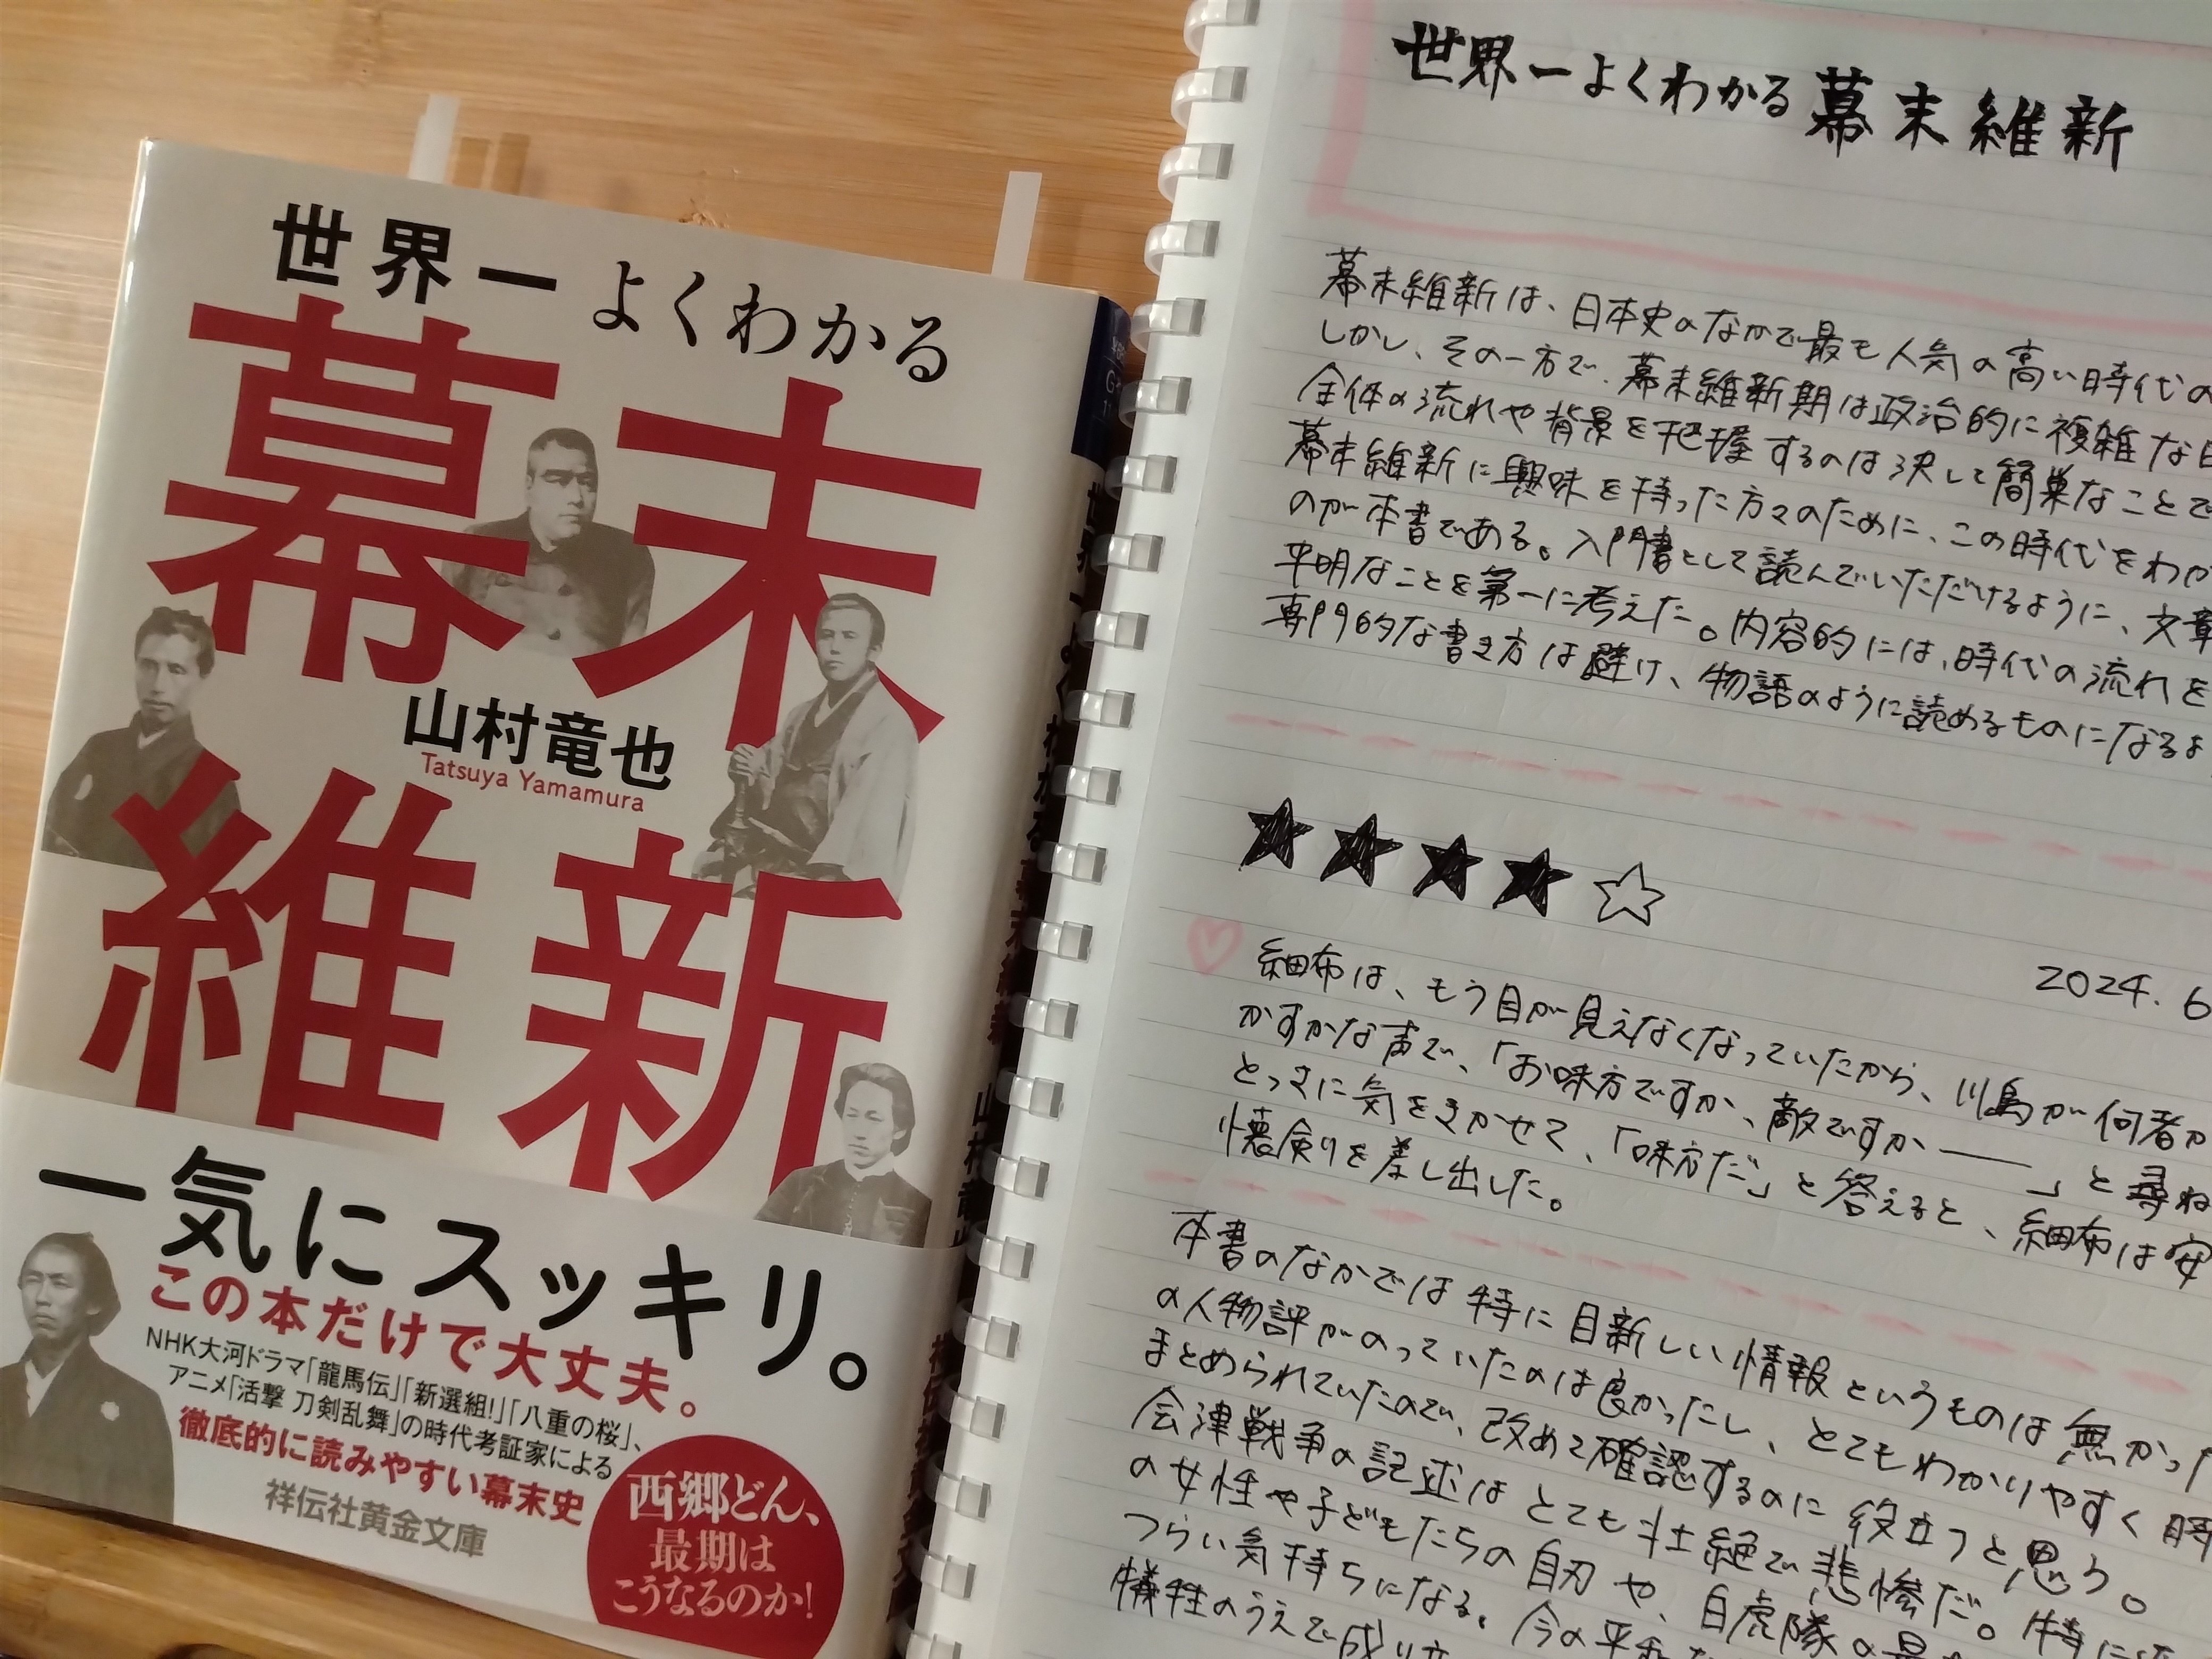 世界一よくわかる
幕末
維新
山村竜也
Tatsuya Yamamura
一気にスッキリ。
この本だけで大丈夫。
NHK大河ドラマ「龍馬伝」「新選組!」「八重の桜」、
アニメ「活撃 刀剣乱舞」の時代考証家による
徹底的に読みやすい幕末史
祥伝社黄金文庫
西郷どん、
最期は
こうなるのか!
世界一よくわかる幕末維新
幕末維新は、日本史のなかで最も人気の高い時代の
しかし、その一方で、幕末維新期は政治的に複雑な
全体の流れや背景を把握するのは決して簡単なことで
幕末維新に興味を持った方々のために、この時代をわか
のが本書である。入門書として読んでいただけるように、文章
平明なことを第一に考えた。内容的には、時代の流れを
専門的な書き方は避け、物語のように読めるものになるよ
★★★★☆
2024.6
細布は、もう目が見えなくなっていたから、川島が何者か
かすかな声で、「お味方ですか、敵ですか――」と尋ね
とっさに気をきかせて、「味方だ」と答えると、細布は安
懐剣を差し出した。
本書のなかでは特に目新しい情報というものは無かった
の人物評がのっていたのは良かったし、とてもわかりやすく時
まとめられていたので、改めて確認するのに役立つと思う。
会津戦争の記述はとても壮絶で悲惨だ。特に
の女性や子どもたちの自刃や、白虎隊の最
つらい気持ちになる。今の平和
犠牲のうえで成り立